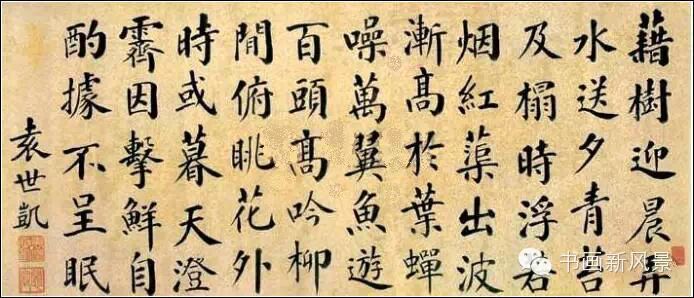 藉樹迎晨
水送夕青苔
及榻時浮
烟紅蕖出波
漸高於葉蟬
噪萬翼魚遊
百頭高吟柳
間俯眺花外
時或暮天澄
霽因擊鮮自
酌據不呈眠
袁世凱
书画新风景